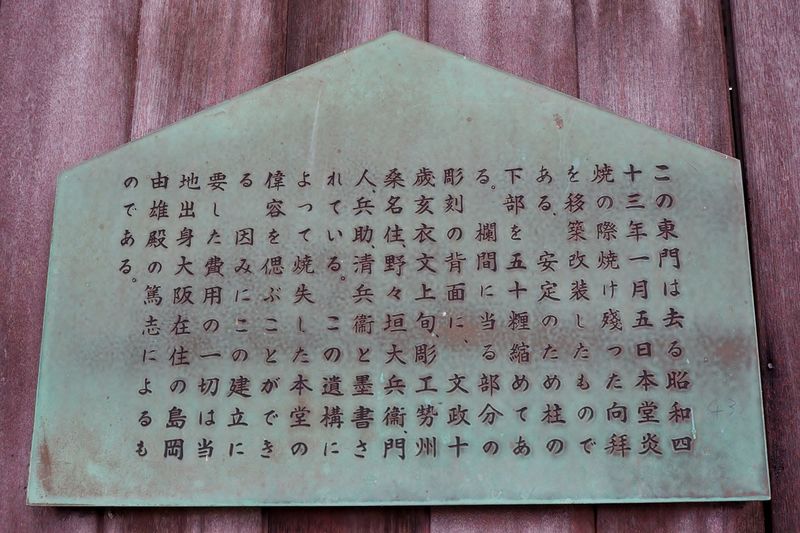 この東門は去る昭和四
十三年一月五日本堂炎
焼の際焼け殘った向拜
を移築改装したもので
ある、安定のため柱の
下部を五十糎縮めてあ
る。欄間に当る部分の
彫刻の背面に、文政十
歳亥衣文上旬、彫工勢州
桑名住野々垣大兵衞、門
人、兵助、清兵衞と墨書さ
れている。この遺構に
よって焼失した本堂の
偉容を偲ぶことができ
る 因みにこの建立に
要した費用の一切は当
地出身大阪在住の島岡
由雄殿の篤志によるも
のである。